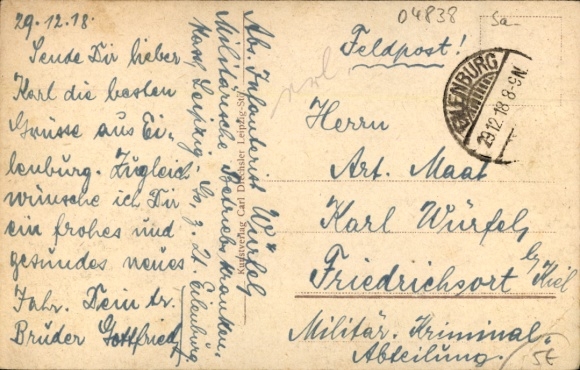 29.12.18.
Sende Dir lieber
Karl die besten
Grüsse aus Ei-
lenburg. Zugleich
wünsche ich Dir
ein frohes und
gesundes neues
Jahr. Dein tr.
Brüder Gottfried
Ab. Infanterist Würfel
Militärische Betriebskranken.
Leipzig. z. Zt. Eilenburg
Kunstverlag Carl Drechsler Leipzig-Stö.
04838
Sa-
Feldpost!
EILENBURG
29.12.18 8-9N.
Herrn
Art. Maat
Karl Würfel
Friedrichsort by Kiel
Militär. Kriminal-
Abteilung.
5€